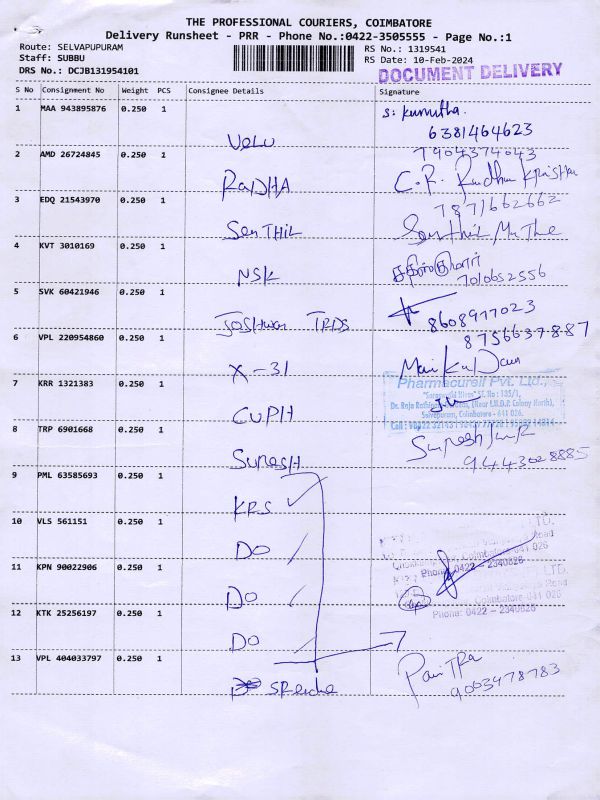 THE PROFESSIONAL COURIERS, COIMBATORE
Delivery Runsheet - PRR - Phone No.:0422-3505555 - Page No.:1
Route: SELVAPUPURAM
RS No.: 1319541
Staff: SUBBU
RS Date: 10-Feb-2024
DRS No.: DCJB131954101
DOCUMENT DELIVERY
S No Consignment No Weight PCS Consignee Details Signature
1 MAA 943895876 0.250 1
S. Kumutha.
6381464623
Velu
2 AMD 26724845 0.250 1
7904374043
RADHA
C.R. Radha Krishna
3 EDQ 21543970 0.250 1
7871662662
SenTHIL
Senthil
4 KVT 3010169 0.250 1
NSK
7010652556
5 SVK 60421946 0.250 1
8608977023
Joshwa TRDS
8756637887
6 VPL 220954860 0.250 1
X-31
7 KRR 1321383 0.250 1
Pharmacureil Pvt. Ltd.,
CUPH
Selvapuram, Coimbatore - 641 026.
8 TRP 6901668 0.250 1
SuResH
9443028885
9 PML 63585693 0.250 1
KRS
10 VLS 561151 0.250 1
LTD.
DO
Coimbatore-641 026
11 KPN 90022906 0.250 1
Phone: 0422 - 2340826
LTD.
DO
Road
Coimbatore-641 026
12 KTK 25256197 0.250 1
Phone: 0422 - 2340826
DO
13 VPL 404033797 0.250 1
9003478783